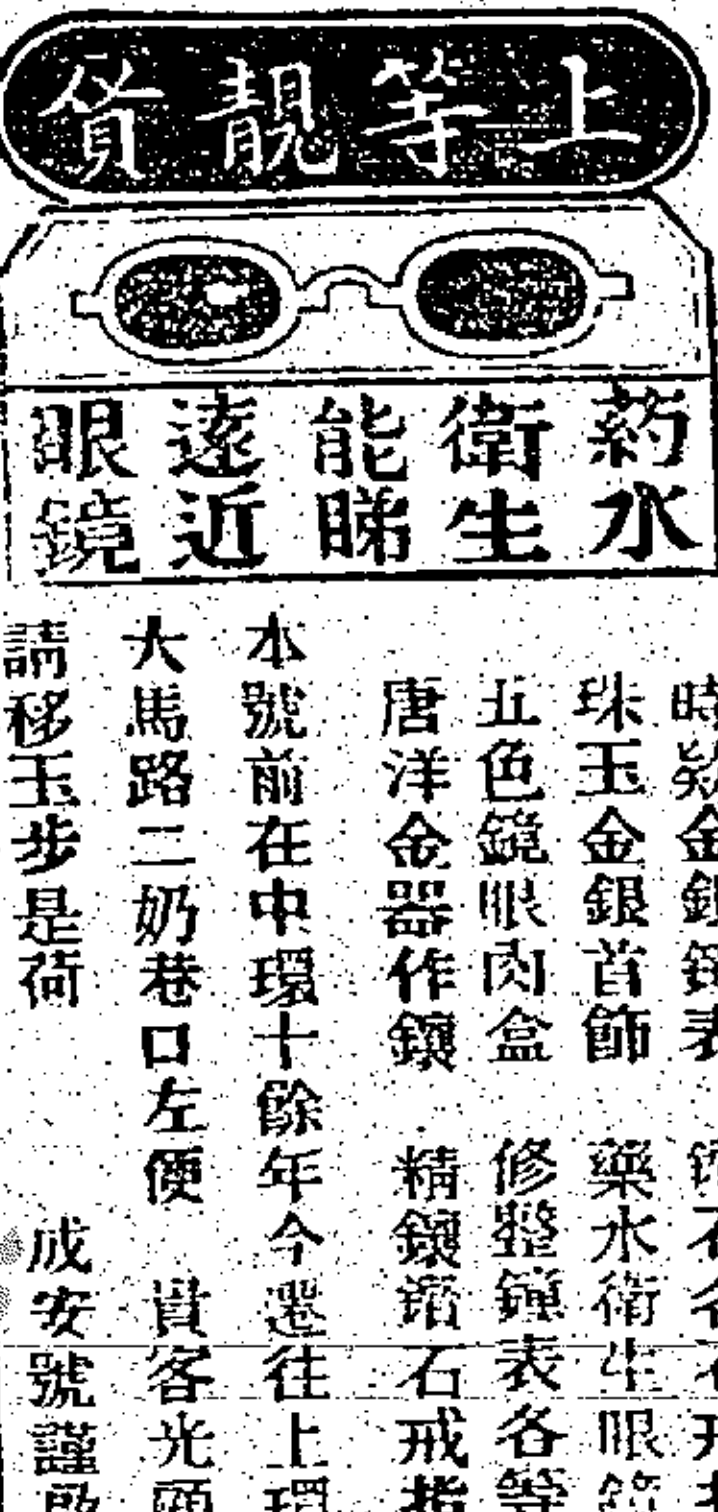 上等靚貨
葯水
衛生
能睇
遠近
眼鏡
時欵金銀鐘表
珠玉金銀首飾 藥水衛生眼鏡
五色鏡眼肉盒 修整鐘表各
唐洋金器作鑲 精鑲鑽石戒指
本號前在中環十餘年今遷往上環
大馬路二奶巷口左便 貴客光顧
請移玉步是荷 成安號謹啟